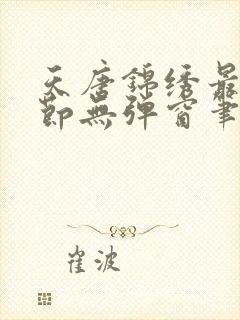 天唐锦绣最
节无弹窗笔
崔波